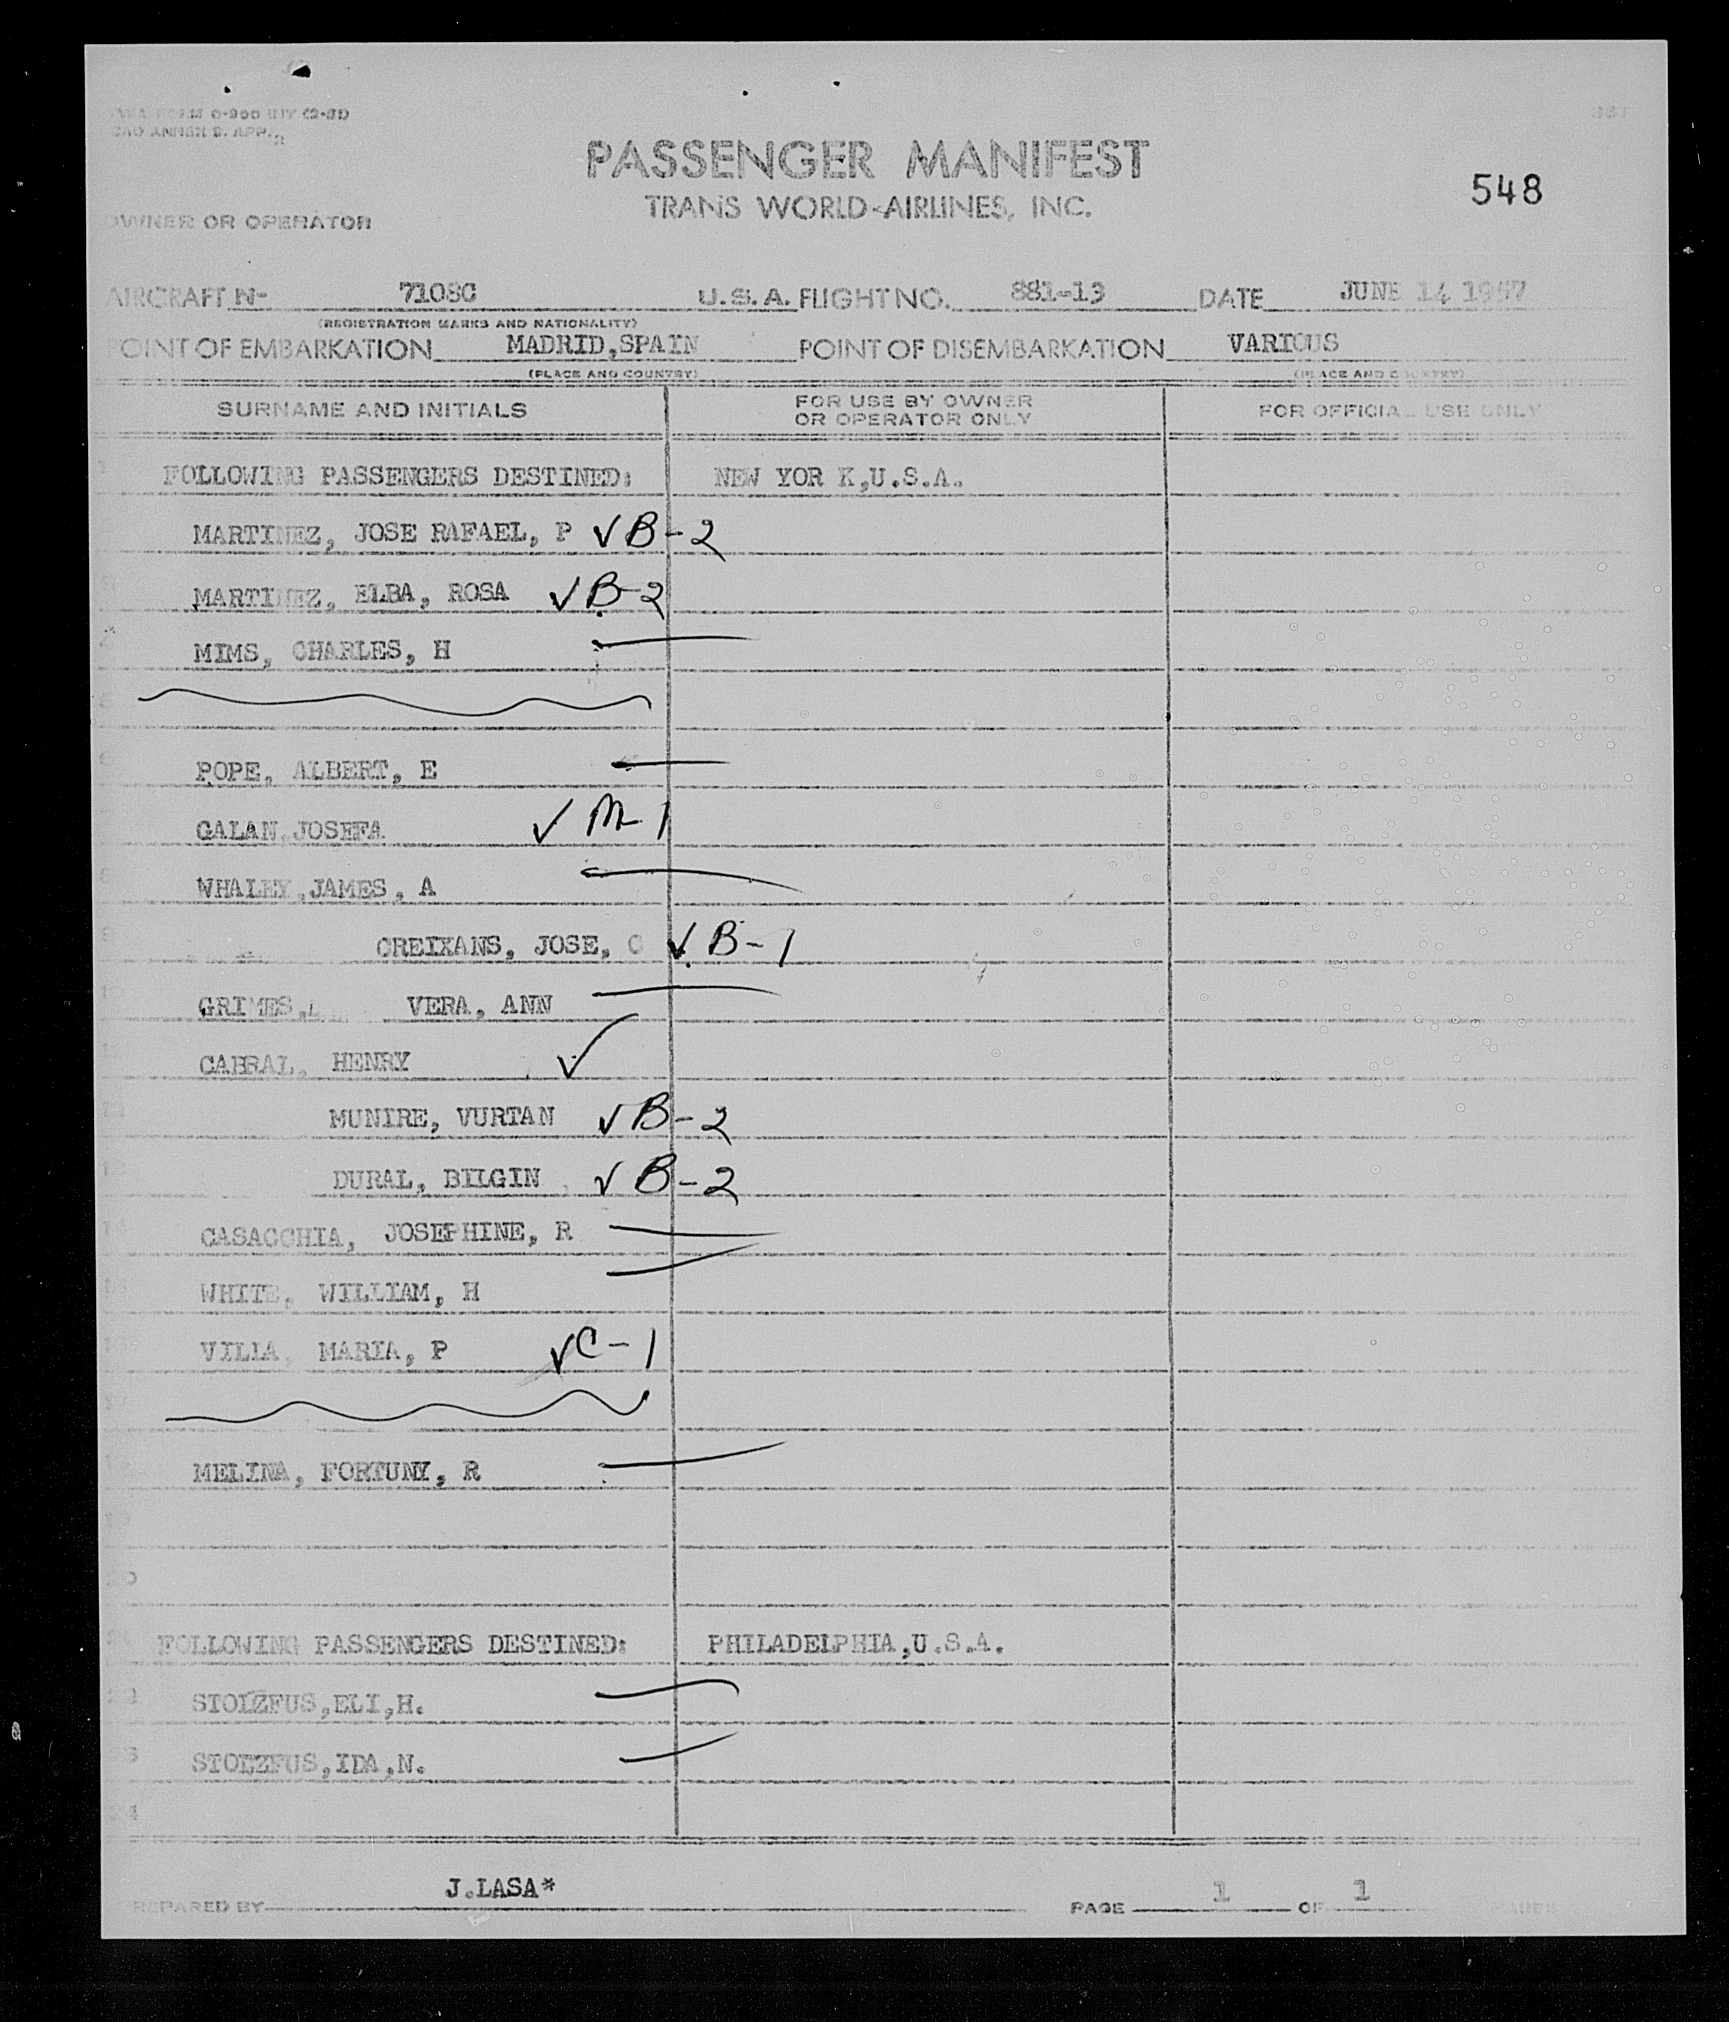 TWA FORM O-900 NY (2-51)
ICAO ANNEX 9. APP. 2
PASSENGER MANIFEST
TRANS WORLD AIRLINES, INC.
548
OWNER OR OPERATOR
AIRCRAFT N- 7108C U.S.A. FLIGHT NO. 881-13 DATE JUNE 14 1957
(REGISTRATION MARKS AND NATIONALITY)
POINT OF EMBARKATION MADRID,SPAIN POINT OF DISEMBARKATION VARIOUS
(PLACE AND COUNTRY) (PLACE AND COUNTRY)
SURNAME AND INITIALS FOR USE BY OWNER OR OPERATOR ONLY FOR OFFICIAL USE ONLY
1 FOLLOWING PASSENGERS DESTINED: NEW YOR K,U.S.A.
MARTINEZ, JOSE RAFAEL, P ✓ B-2
MARTINEZ, ELBA, ROSA ✓ B-2
MIMS, CHARLES, H
POPE, ALBERT, E
GALAN,JOSEFA ✓ M-1
8 WHALEY,JAMES, A
9 CREIXANS, JOSE, C ✓ B-1
10 GRIMES, VERA, ANN
CABRAL, HENRY ✓
MUNIRE, VURTAN ✓ B-2
DURAL, BILGIN ✓ B-2
14 CASACCHIA, JOSEPHINE, R
WHITE, WILLIAM, H
VILIA, MARIA, P ✓ C-1
MELINA, FORTUNY, R
20
21 FOLLOWING PASSENGERS DESTINED: PHILADELPHIA,U.S.A.
22 STOLZFUS,ELI,H.
23 STOLZFUS,IDA,N.
24
PREPARED BY J.LASA* PAGE 1 OF 1 PAGES